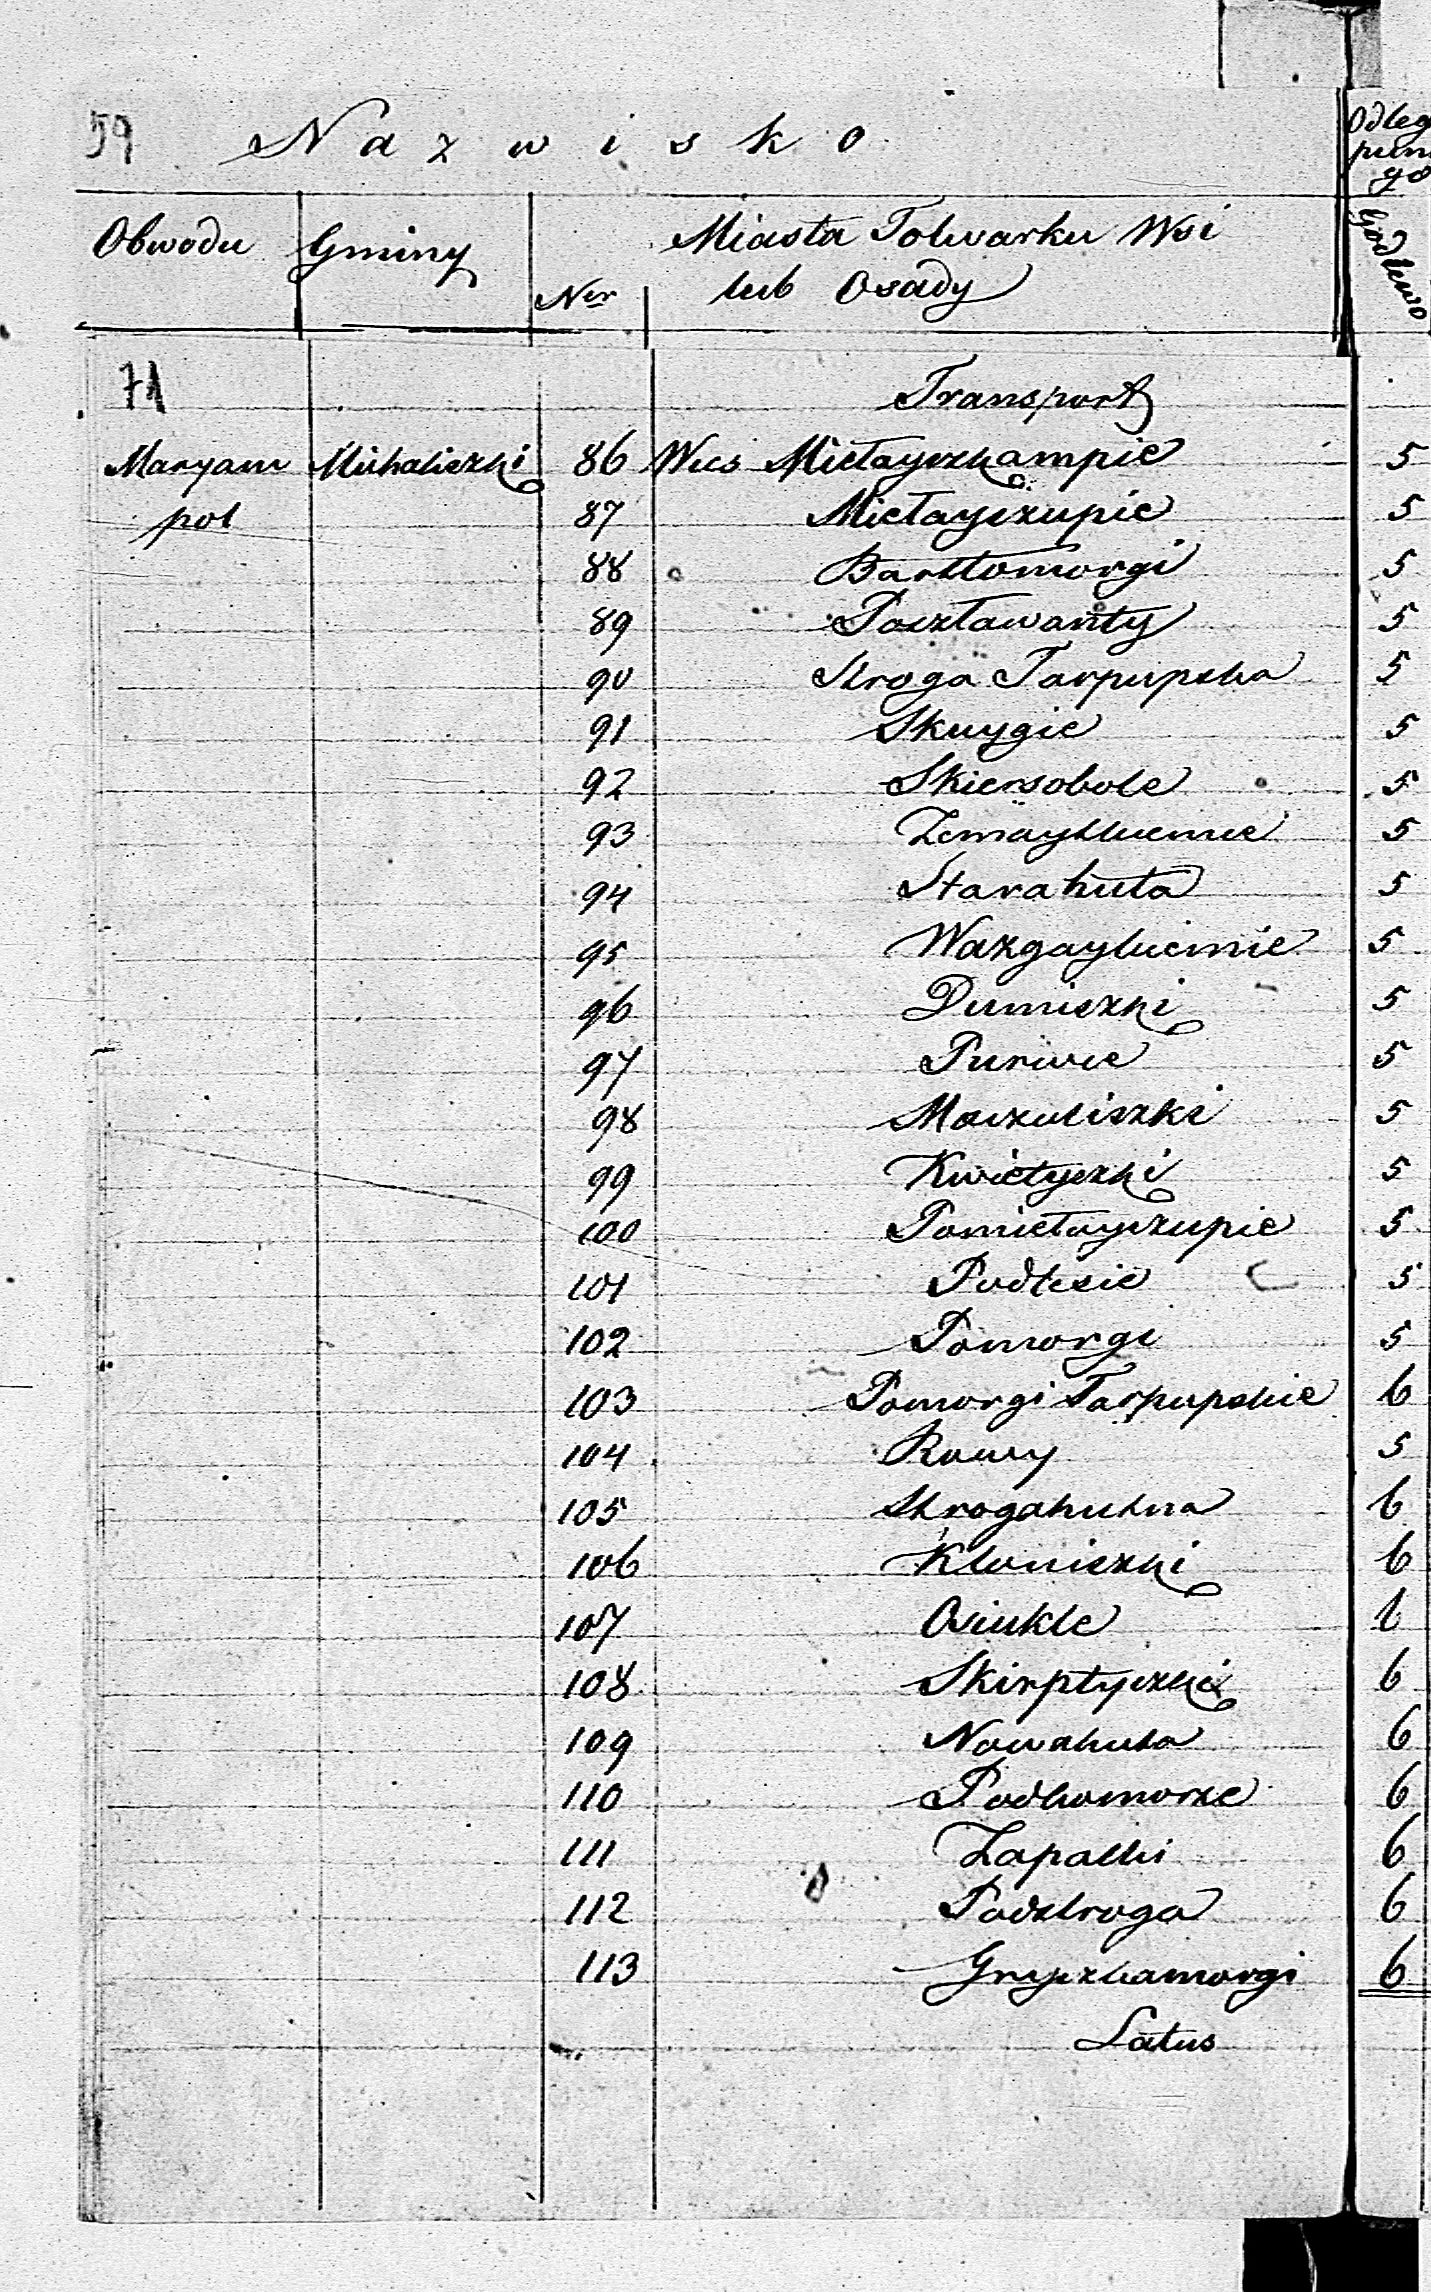 59 Nazwisko
Odleg
pun
go
Obwodu Gminy Miasta Folwarku Wsi
Ner lub Osady
Godlewo
71 Transport
Maryam Michaliszki 86 Wieś Mietayszkampie 5
pol 87 Mietayszupie 5
88 Bartłomorgi 5
89 Poszławanty 5
90 Stroga Tarpupska 5
91 Skuygie 5
92 Skiersobole 5
93 Zemaytkiemie 5
94 Starahuta 5
95 Wazgaykiemie 5
96 Dumiszki 5
97 Purwie 5
98 Maszuliszki 5
99 Kwietyszki 5
100 Pomietayszupie 5
101 Podlesie 5
102 Pomorgi 5
103 Pomorgi Tarpupskie 6
104 Rowy 5
105 Strogahutna 6
106 Kloniszki 6
107 Osiukle 6
108 Skirptyszki 6
109 Nowahuta 6
110 Podkomorze 6
111 Zapalki 6
112 Podstroga 6
113 Gryszkamorgi 6
Latus